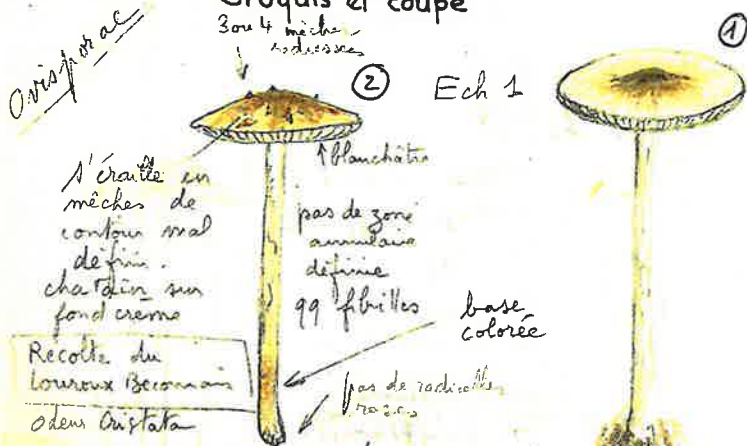 Croquis et coupe
3 ou 4 mèches
redressées
Ovisporac
②
Ech 1
①
↑ blanchâtre
s'éraille en
mèches de
contour mal
défini.
chatain sur
fond creme
pas de zone
annulaire
définie
qq fibrilles
base
colorée
Recolte du
Louroux Beconnais
odeur Cristata
pas de radicelles